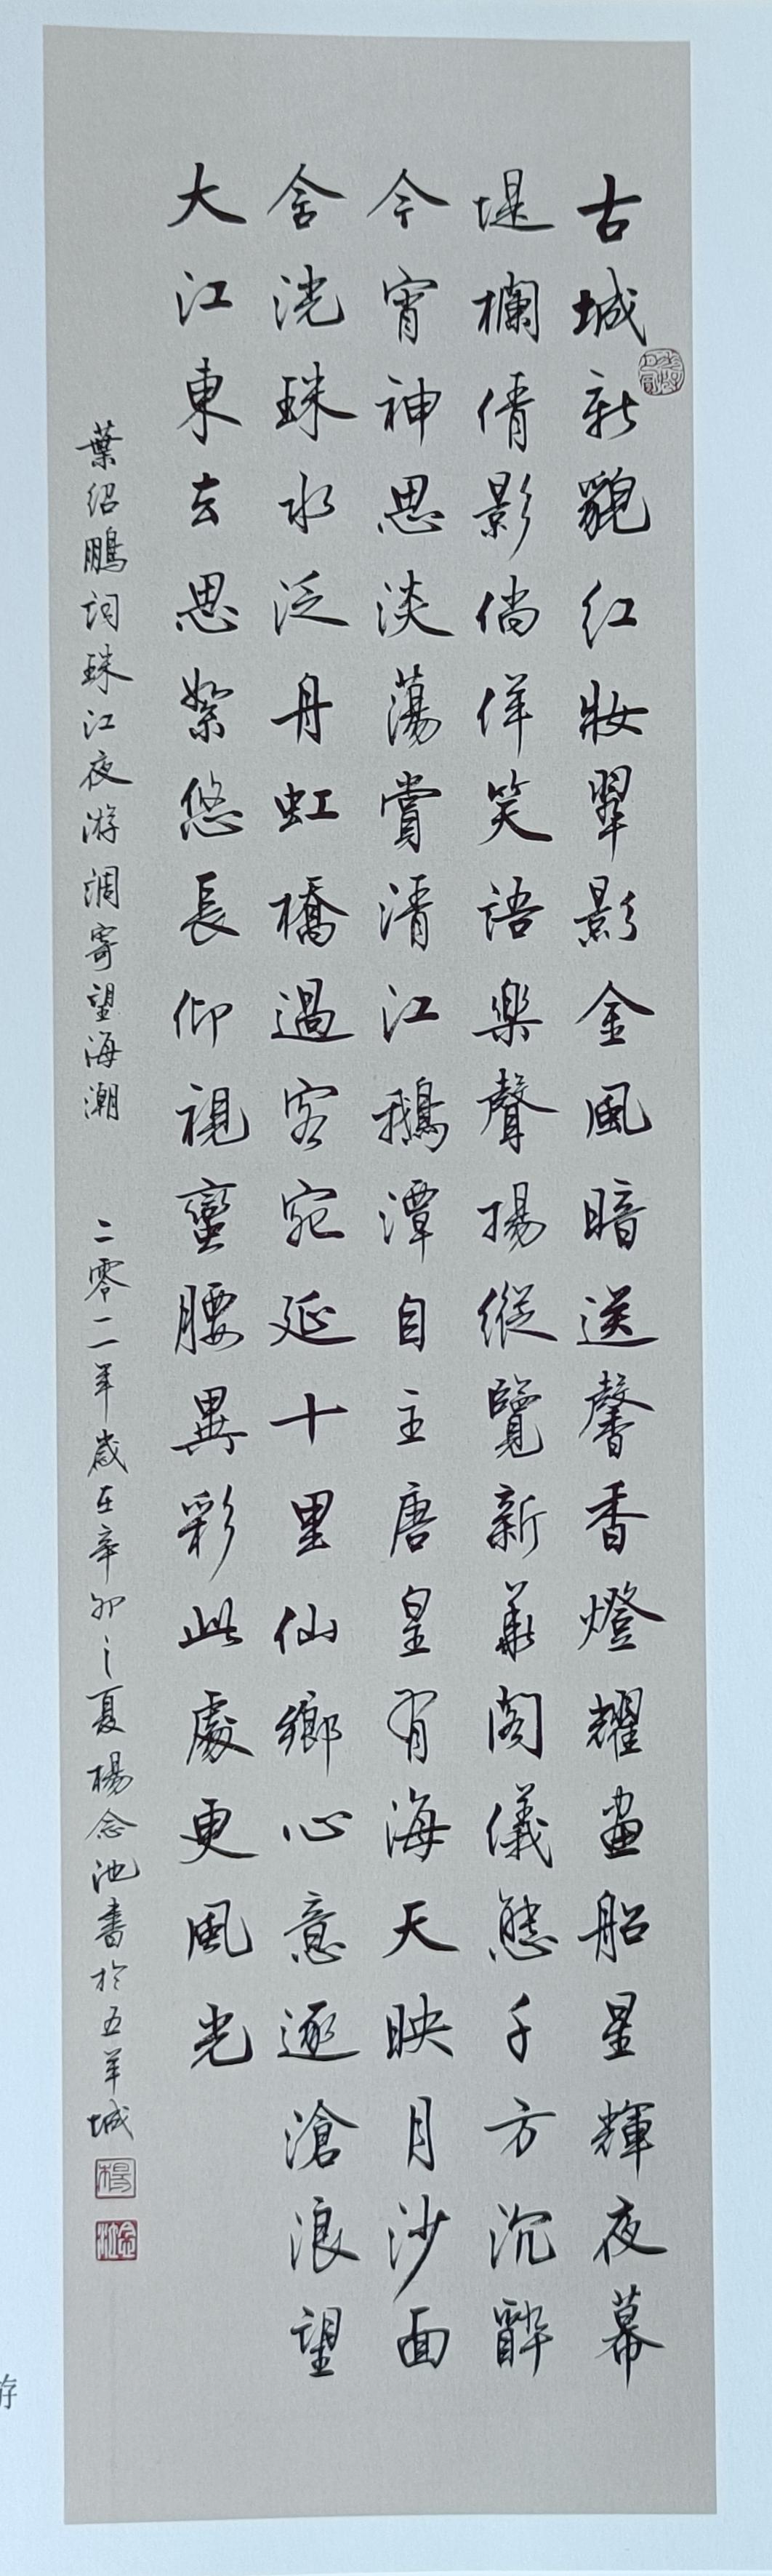 古城新貌红妝翠影金風暗送馨香燈耀畫船星輝夜幕
堤欄倩影倘佯笑語樂聲揚縱覽新華阁儀態千方沉醉
今宵神思淡蕩賞清江鵝潭自主唐皇有海天映月沙面
含洸珠水泛丹虹橋過客宛延十里仙鄉心意逐滄浪望
大江東去思絮悠長仰視蠻腰異彩此處更風光
葉绍鵬詞珠江夜游調寄望海潮
二零二一年歲在辛卯之夏楊念池書於五羊城
楊
游